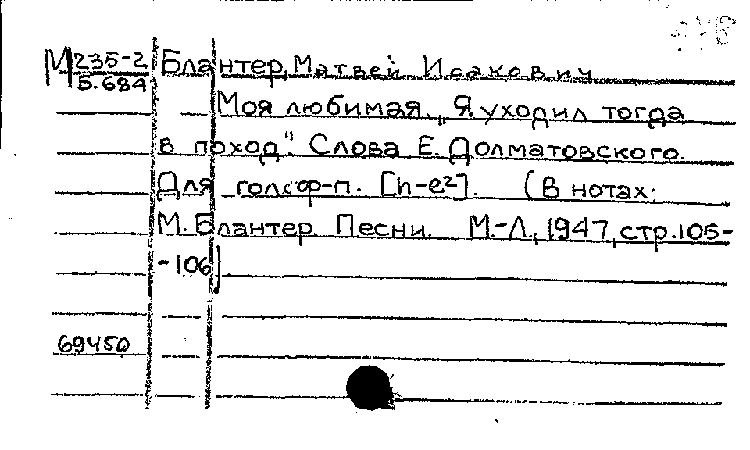 М 235-2 Блантер, Матвей Исакович
5.684
Моя любимая. „Я уходил тогда
в поход". Слова Е. Долматовского.
Для гол с ф-п. [h-e²]. (В нотах:
М. Блантер. Песни. М.-Л., 1947, стр. 105-
-106)
69450